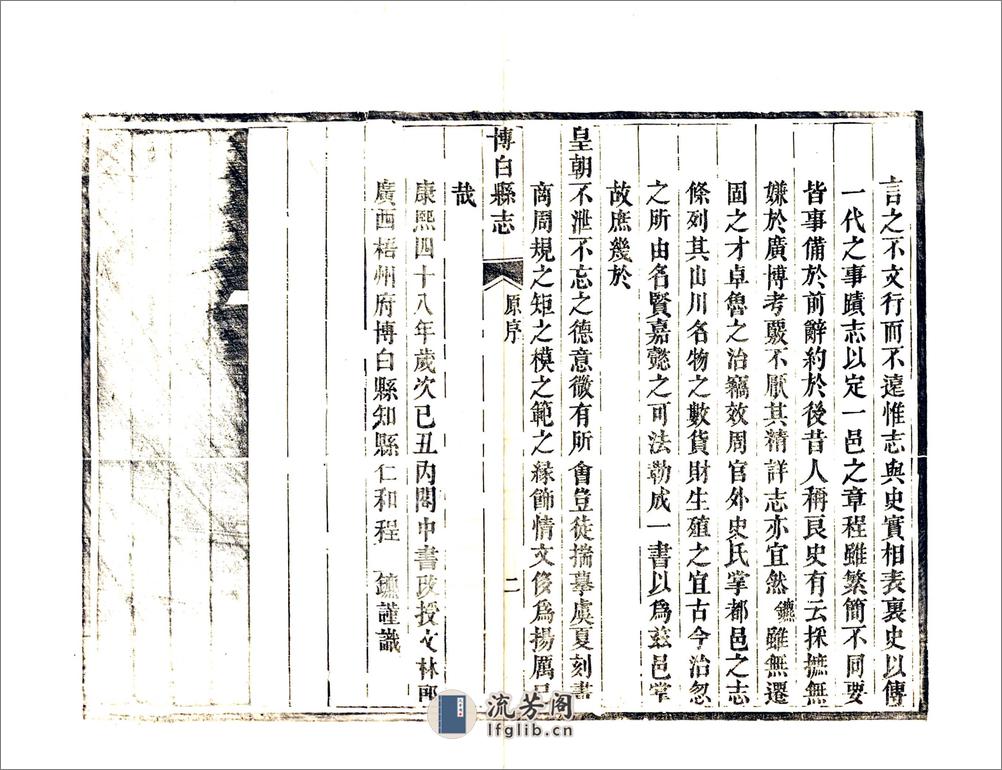 言之不文行而不遠惟志與史實相表裏史以傳
一代之事蹟志以定一邑之章程雖繁簡不同要
皆事備於前辭約於後昔人稱良史有云採摭無
嫌於廣博考覈不厭其精詳志亦宜然鑣雖無遷
固之才卓魯之治竊效周官外史氏掌都邑之志
條列其山川名物之數貨財生殖之宜古今治忽
之所由名賢嘉懿之可法勒成一書以為茲邑掌
故庶幾於
皇朝不泄不忘之德意微有所會豈徒揣摹虞夏刻畫
商周規之矩之模之範之緣飾情文侈為揚厲已
博白縣志
原序
二
哉
康熙四十八年歲次己丑內閣中書改授文林郎
廣西梧州府博白縣知縣仁和程 鑣謹識
流芳阁
lfglib.cn